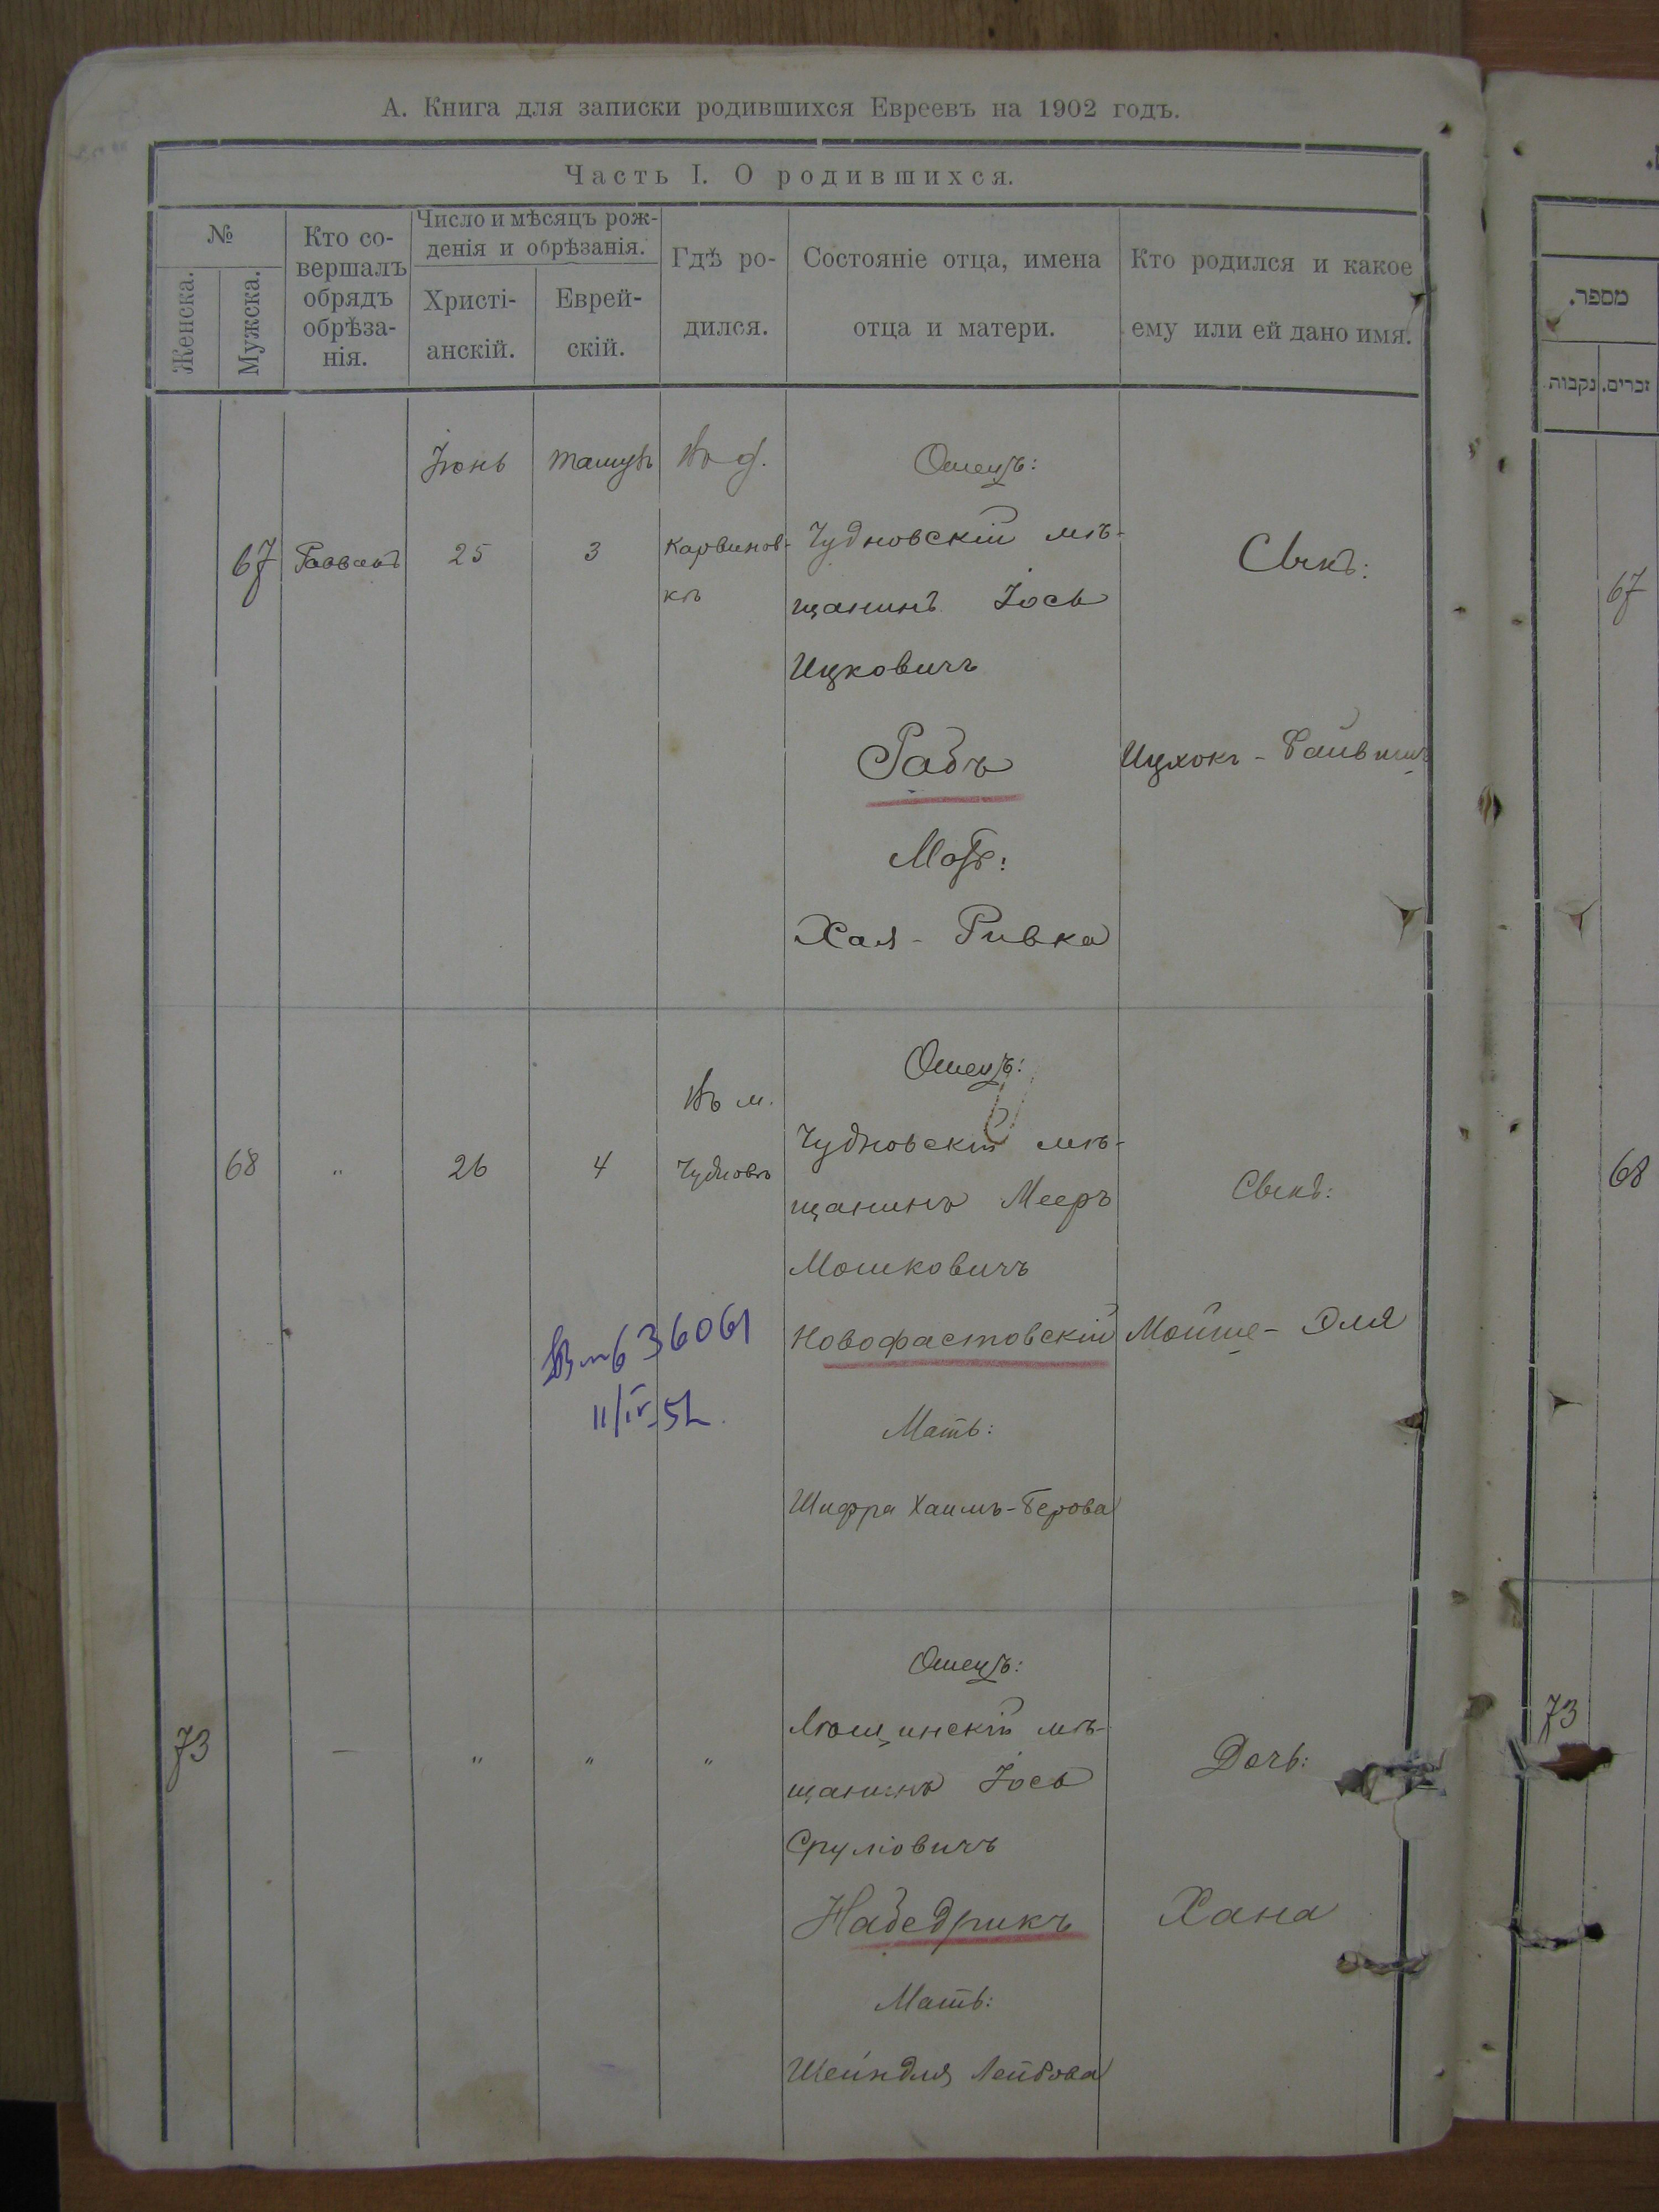 А. Книга для записки родившихся Евреевъ на 1902 годъ.
Часть I. О родившихся.
№
Женска.
Мужска.
Кто со-
вершалъ
обрядъ
обрѣза-
нія.
Число и мѣсяцъ рож-
денія и обрѣзанія.
Христі-
анскій.
Еврей-
скій.
Гдѣ ро-
дился.
Состояніе отца, имена
отца и матери.
Кто родился и какое
ему или ей дано имя.
Іюнь
Тамузъ
Въ д.
Отецъ:
67
Раввинъ
25
3
Карвинов-
кѣ
Чудновскій мѣ-
щанинъ Іось
Ицковичъ
Рабъ
Мать:
Хая - Ривка
Сынъ:
Ицхокъ - Файвишъ
68
"
26
4
Въ м.
Чудновѣ
Отецъ:
Чудновскій мѣ-
щанинъ Мееръ
Мошковичъ
Новофастовскій
Мать:
Шифра Хаимъ-Берова
Сынъ:
Мойше - Эля
636061
11/IV-52.
73
—
"
"
"
Отецъ:
мѣ-
щанинъ Іось
Сруліовичъ
Набедрикъ
Мать:
Шейндля Лейбова
Дочь:
Хана
מספר.
זכרים.
נקבות.
67
68
73